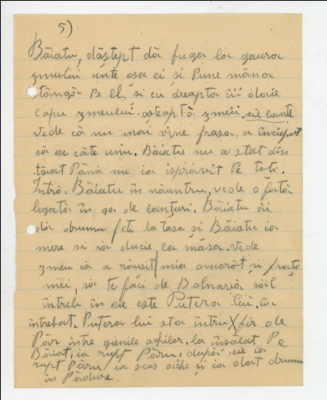 5)
Băiatu, dăștept dă fuga la gaura
zmeului unte așa ei si Pune mâna
stângă Pe el, si cu dreapta îi doaie
capu zmeului. așteaptă zmeii, cei
vede că nu mai vine frasa. a început
să ias câte unu. Băiatu nu a stat din
taiat Până nu ia isprăvit Pe toți.
Intră Băiatu în năuntru, vede o fată
legată în de lanțuri. Băiatu îi
dă drumu feti la tasa și Băiatu ia
mere si să ducie la masa. vede
zmeu că a reusit mia omorât și frate
mii, să te faci de Bolnavă să-l
întrebi în ce este Puterea lui. la
întrebat. Puterea lui sta întru păr de
Păr între gienele ochilor. la însălat Pe
Băiat, ia rupt Păru, după ce ia
rupt Păru ia scos ochi si ia dat drumu
în Pădure.